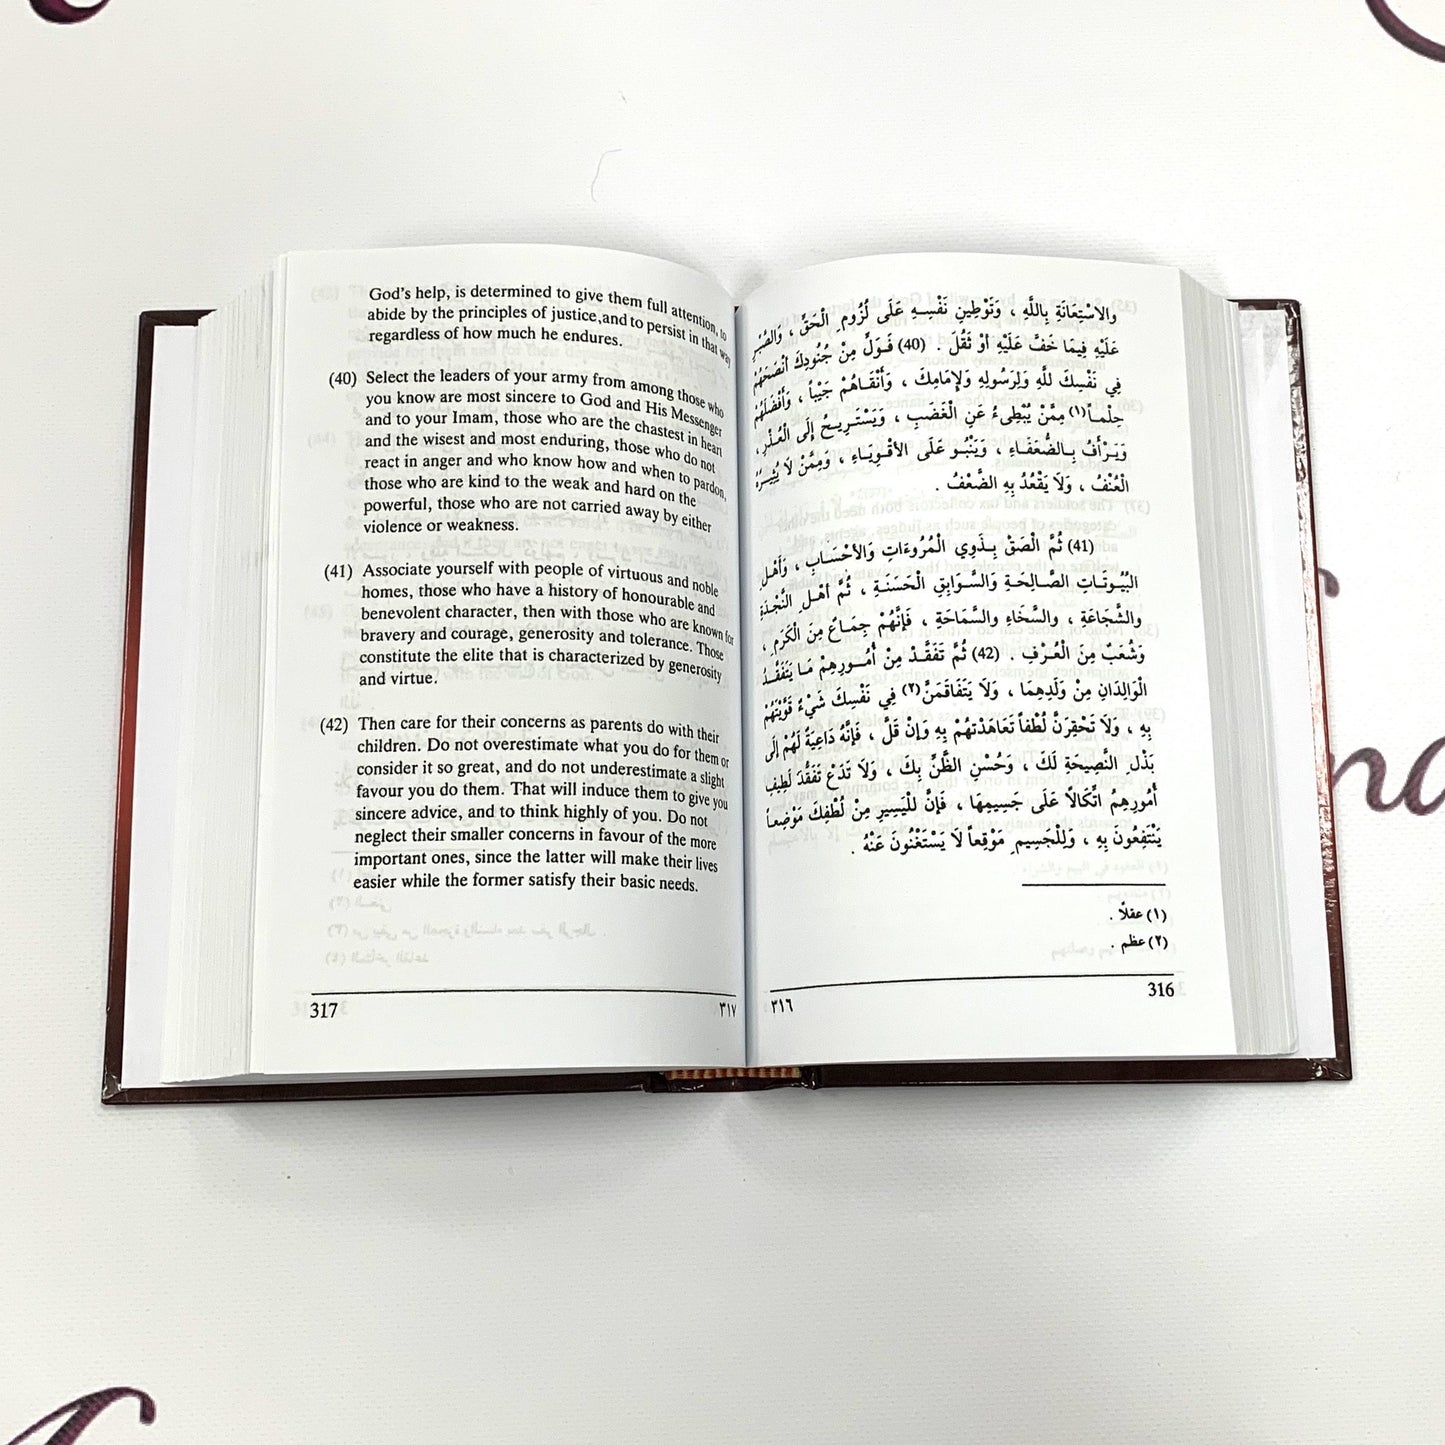 God's help, is determined to give them full attention, to
abide by the principles of justice,and to persist in that way
regardless of how much he endures.
(40) Select the leaders of your army from among those who
you know are most sincere to God and His Messenger
and to your Imam, those who are the chastest in heart
and the wisest and most enduring, those who do not
react in anger and who know how and when to pardon,
those who are kind to the weak and hard on the
powerful, those who are not carried away by either
violence or weakness.
(41) Associate yourself with people of virtuous and noble
homes, those who have a history of honourable and
benevolent character, then with those who are known for
bravery and courage, generosity and tolerance. Those
constitute the elite that is characterized by generosity
and virtue.
(42) Then care for their concerns as parents do with their
children. Do not overestimate what you do for them or
consider it so great, and do not underestimate a slight
favour you do them. That will induce them to give you
sincere advice, and to think highly of you. Do not
neglect their smaller concerns in favour of the more
important ones, since the latter will make their lives
easier while the former satisfy their basic needs.
317 ٣١٧
والاسْتِعَانَةِ بِاللَّهِ ، وَتَوْطِينِ نَفْسِهِ عَلَى لُزُومِ الْحَقِّ ، وَالصَّبْرِ
عَلَيْهِ فِيمَا خَفَّ عَلَيْهِ أَوْ ثَقُلَ . (40) فَوَلِّ مِنْ جُنُودِكَ أَنْصَحَهُمْ
فِي نَفْسِكَ للَّهِ وَلِرَسُولِهِ وَلإِمَامِكَ ، وَأَنْقَاهُمْ جَيْباً ، وَأَفْضَلَهُمْ
حِلْماً(١) مِمَّنْ يُبْطِىءُ عَنِ الْغَضَبِ ، وَيَسْتَرِيحُ إِلَى الْعُذْرِ ،
وَيَرْأَفُ بِالضُّعَفَاءِ ، وَيَنْبُو عَلَى الأَقْوِيَاءِ ، وَمِمَّنْ لَا يُثِيرُهُ
الْعُنْفُ ، وَلَا يَقْعُدُ بِهِ الضَّعْفُ .
(41) ثُمَّ الْصَقْ بِذَوِي الْمُرُوءَاتِ وَالأَحْسَابِ ، وَأَهْلِ
الْبُيُوتَاتِ الصَّالِحَةِ وَالسَّوَابِقِ الْحَسَنَةِ ، ثُمَّ أَهْلِ النَّجْدَةِ
والشَّجَاعَةِ ، والسَّخَاءِ والسَّمَاحَةِ ، فَإِنَّهُمْ جِمَاعٌ مِنَ الْكَرَمِ ،
وَشُعَبٌ مِنَ الْعُرْفِ . (42) ثُمَّ تَفَقَّدْ مِنْ أُمُورِهِمْ مَا يَتَفَقَّدُ
الْوَالِدَانِ مِنْ وَلَدِهِمَا ، وَلَا يَتَفَاقَمَنَّ(٢) فِي نَفْسِكَ شَيْءٌ قَوَّيْتَهُمْ
بِهِ ، وَلَا تَحْقِرَنَّ لُطْفاً تَعَاهَدْتَهُمْ بِهِ وَإِنْ قَلَّ ، فَإِنَّهُ دَاعِيَةٌ لَهُمْ إِلَى
بَذْلِ النَّصِيحَةِ لَكَ ، وَحُسْنِ الظَّنِّ بِكَ ، وَلَا تَدَعْ تَفَقُّدَ لَطِيفِ
أُمُورِهِمُ اتِّكَالًا عَلَى جَسِيمِهَا ، فَإِنَّ لِلْيَسِيرِ مِنْ لُطْفِكَ مَوْضِعاً
يَنْتَفِعُونَ بِهِ ، وَلِلْجَسِيمِ مَوْقِعاً لَا يَسْتَغْنُونَ عَنْهُ .
(١) عقلاً .
(٢) عظم .
٣١٦ 316